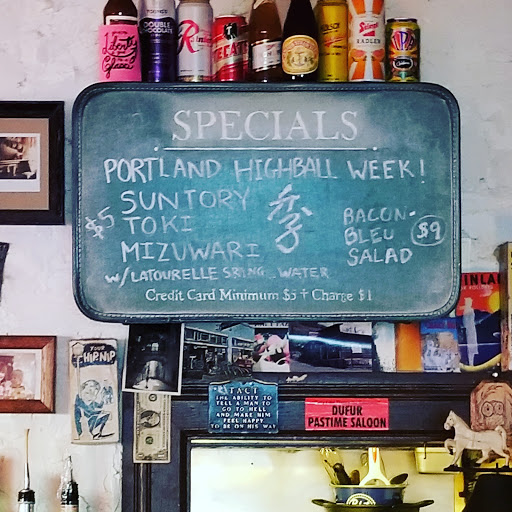 Liberty
Glass
DOUBLE
CHOCOLATE
R
TECATE
RADLER
SPECIALS
PORTLAND HIGHBALL WEEK!
$5
SUNTORY
TOKI
MIZUWARI
W/ LATOURELLE SPRING WATER
BACON-
BLEU
SALAD
$9
Credit Card Minimum $5 + Charge $1
YOUR
CHIP NIP
TACT
THE ABILITY TO
TELL A MAN TO
GO TO HELL
AND MAKE HIM
FEEL HAPPY
TO BE ON HIS WAY
DUFUR
PASTIME SALOON